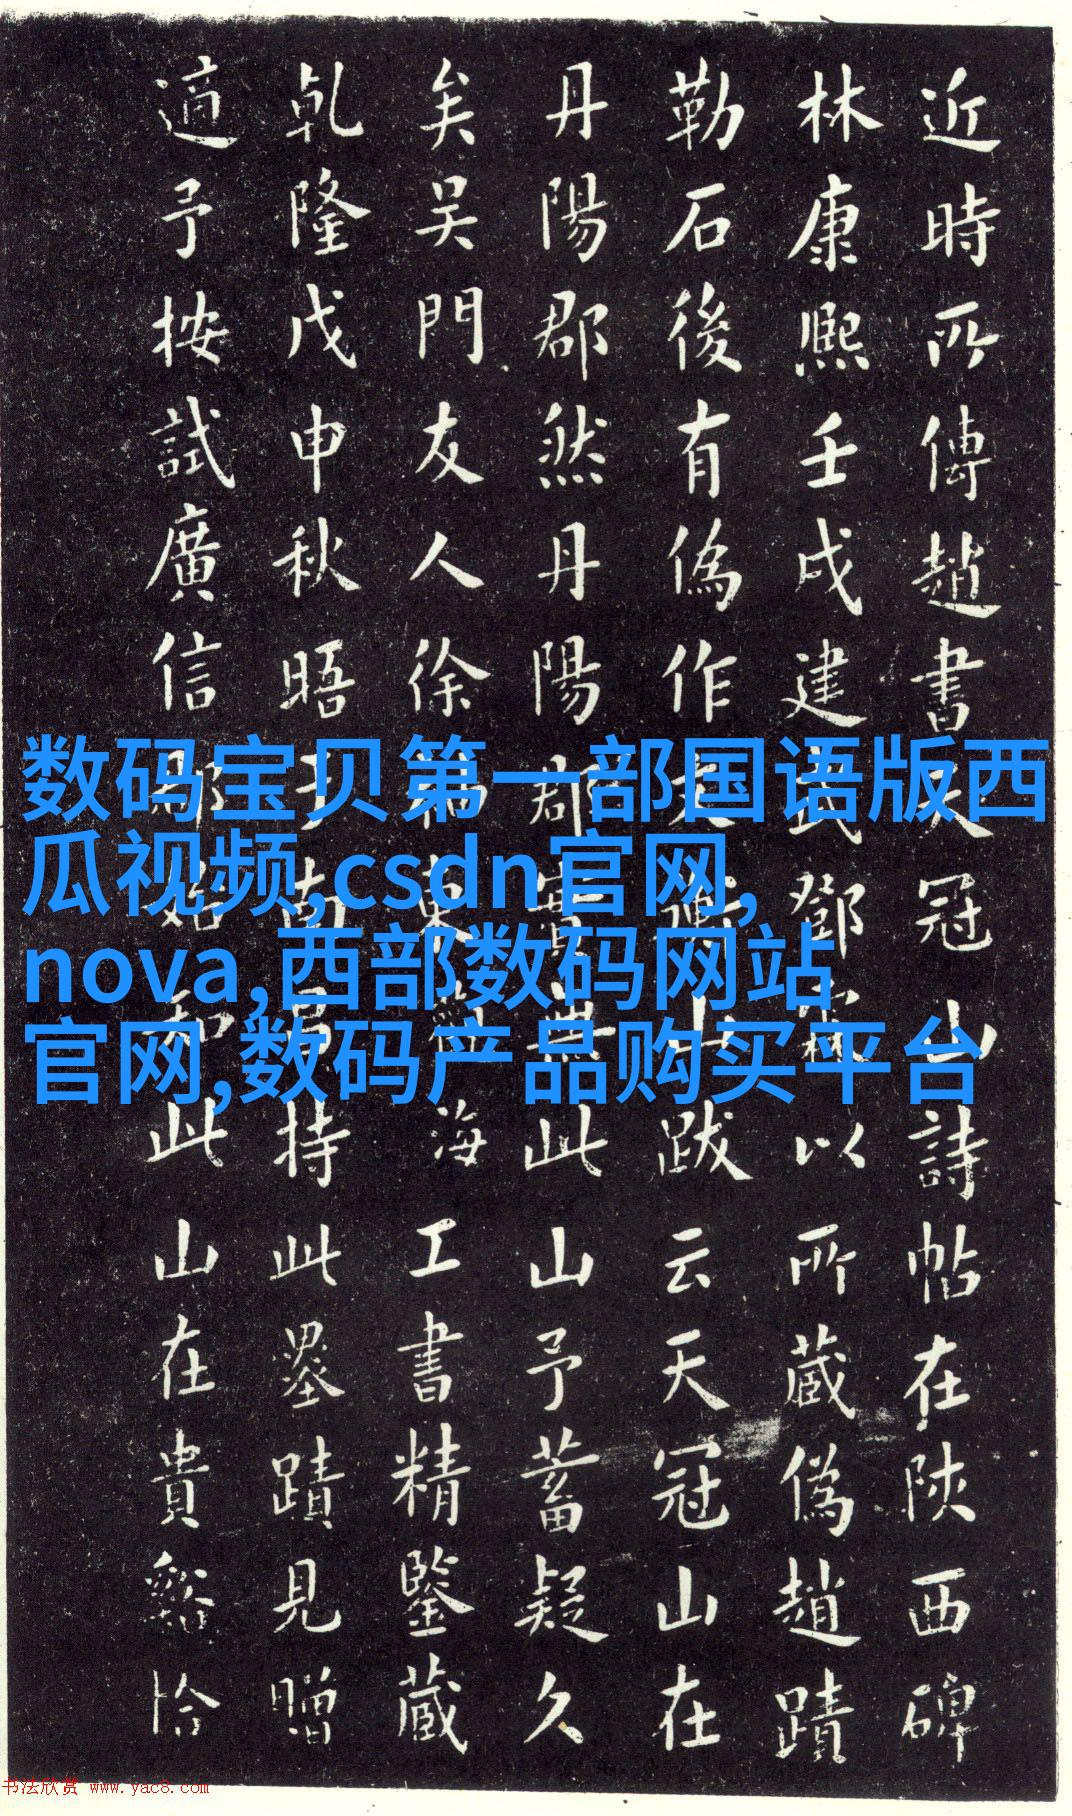 近時所傳趙書天冠山詩帖在陝西碑
林康熙壬戌建武鄧以所藏偽趙蹟
勒石後有偽作文衡山跋云天冠山在
丹陽郡然丹陽郡實無此山予蓄疑久
矣吳門友人徐東海工書精鑒藏
乾隆戊申秋晤于南昌持此墨蹟見贈
適予按試廣信郡始知此山在貴谿恰
数码宝贝第一部国语版西
瓜视频,csdn官网,
nova,西部数码网站
官网,数码产品购买平台
书法欣赏 www.yac8.com